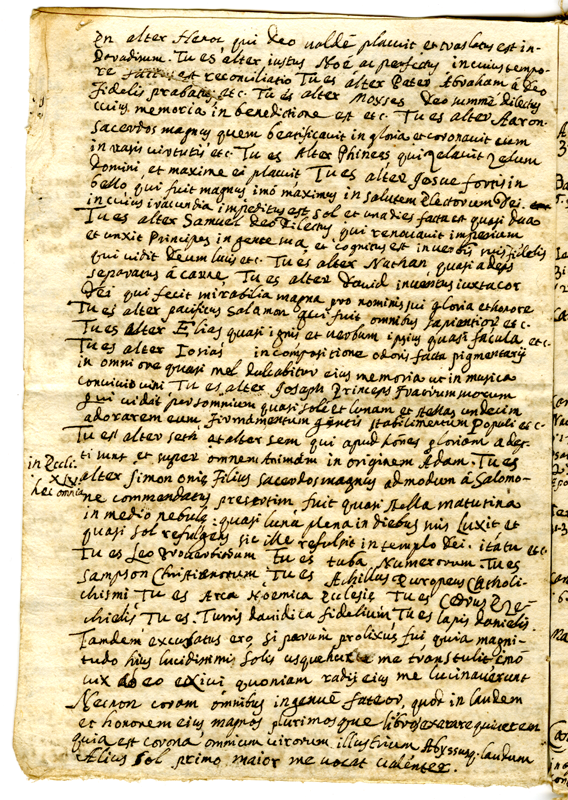 En alter Henoc qui Deo valdè placuit et traslatus est in
Paradisum. Tu es alter iustus Noè ac perfectus in cuius tempo-
re factus est reconciliatio Tu es alter Pater Abraham à Deo
fidelis probatus etc. Tu es alter Moyses Deo summè dilectus
cuius memoria in benedictione est etc. Tu es alter Aaron
Sacerdos magnus quem beatificauit in gloria et coronauit eum
in vasis virtutis etc. Tu es Alter Phinees qui Zelauit Zelum
Domini, et maxime ei placuit Tu es alter Josue fortis in
bello, qui fuit magnus imò maximus in salutem Electorum Dei.
in cuius iracundia impeditus est sol et una dies facta est quasi duo
Tu es alter Samuel Deo Dilectus qui renouauit imperium
et unxit Principes in gente sua, et cognitus est in uerbis suis fidelis
qui uidit Deum lucis etc. Tu es alter Nathan quasi adeps
separatus à carne Tu es alter Dauid inuentus iuxta cor
Dei qui fecit mirabilia magna pro nominis sui gloria et honore
Tu es alter pacificus Salamon qui fuit omnibus sapientior etc.
Tu es alter Elias quasi ignis et uerbum ipsius quasi facula etc.
Tu es alter Iosias in compositione odoris facta pigmentarij
in omni ore quasi mel dulcabitur eius memoria ut in musica
conuiuio uini Tu es alter Joseph Princeps Fratrum suorum
qui uidit per somnium quasi solè et lunam et stellas undecim
adorarem eum firmamentum gentis stabilimentum Populi etc.
Tu es alter seth at alter sem qui apud hoñes gloriam adep-
ti sunt et super omnem Animam in originem Adam. Tu es
in Eccli.
XLV.
hei omnia
alter Simon onie Filius sacerdos magnus admodum à Salomo-
ne commendatus presertim fuit quasi stella matutina
in medio nebule: quasi luna plena in diebus suis Luxit et
quasi sol refulgens sic ille refulsit in templo Dei. ità tu etc.
Tu es Leo Prouerbiorum Tu es tuba Numerorum. Tu es
Sampson Christianorum Tu es Achilles Europeus Catholi-
chismi Tu es Arca Noemica Ecclesie Tu es Cedrus Eze-
chielis Tu es. Turris dauidica fidelium Tu es lapis danielis.
Tamdem excusatus ero, si parum prolixus fui quia magni-
tudo hujus lucidissimi solis usque huc me transtulit imò
uix ab eo exiui quoniam radij eius me
Necnon coram omnibus ingenuè fateor, quod in laudem
et honorem eius magnos plurimosque libros exarare quiuerem
quia est corona omnium uirorum illustrium Abyssusq. laudum
Alius sol primo maior me vocat ualenter.